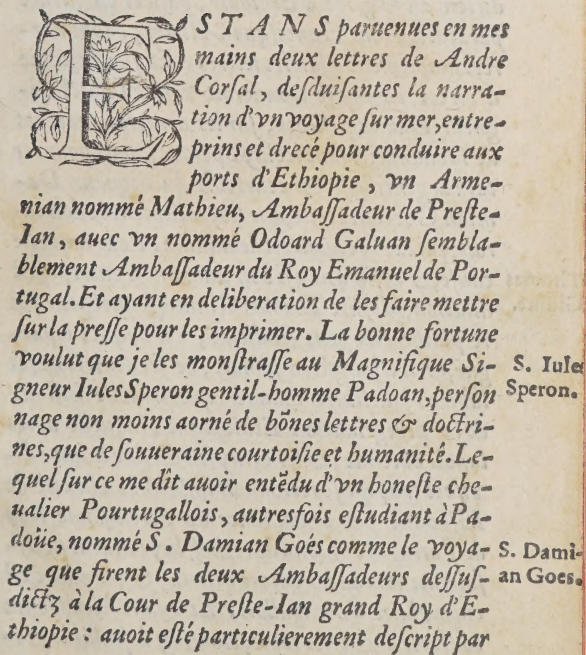 ESTANS paruenues en mes
mains deux lettres de Andre
Corſal, deſduiſantes la narra-
tion d'vn voyage ſur mer, entre-
prins et drecé pour conduire aux
ports d'Ethiopie, vn Arme-
nian nommé Mathieu, Ambaſſadeur de Preſte-
Ian, auec vn nommé Odoard Galuan ſembla-
blement Ambaſſadeur du Roy Emanuel de Por-
tugal. Et ayant en deliberation de les faire mettre
ſur la preſſe pour les imprimer. La bonne fortune
voulut que je les monſtraſſe au Magnifique Si-
gneur Iules Speron gentil-homme Padoan, perſon
nage non moins aorné de bõnes lettres & doctri-
nes, que de ſouueraine courtoiſie et humanité. Le-
quel ſur ce me dît auoir entẽdu d'vn honeſte che-
ualier Pourtugallois, autresfois eſtudiant à Pa-
doüe, nommé S. Damian Goés comme le voya-
ge que firent les deux Ambaſſadeurs deſſuſ-
dictz à la Cour de Preſte-Ian grand Roy d'E-
thiopie : auoit eſté particulierement deſcript par
S. Iules
Speron.
S. Dami-
an Goes.